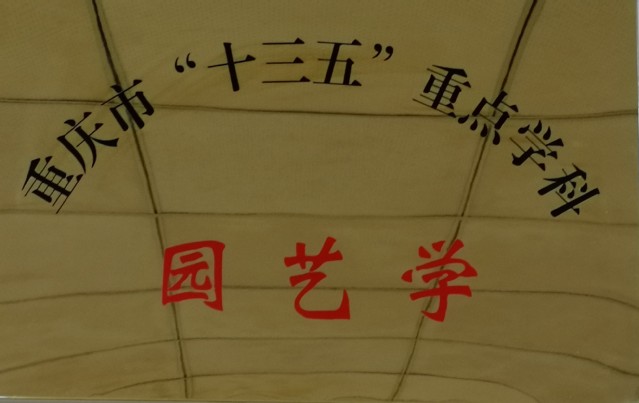 重庆市“十三五”重点学科
园艺学